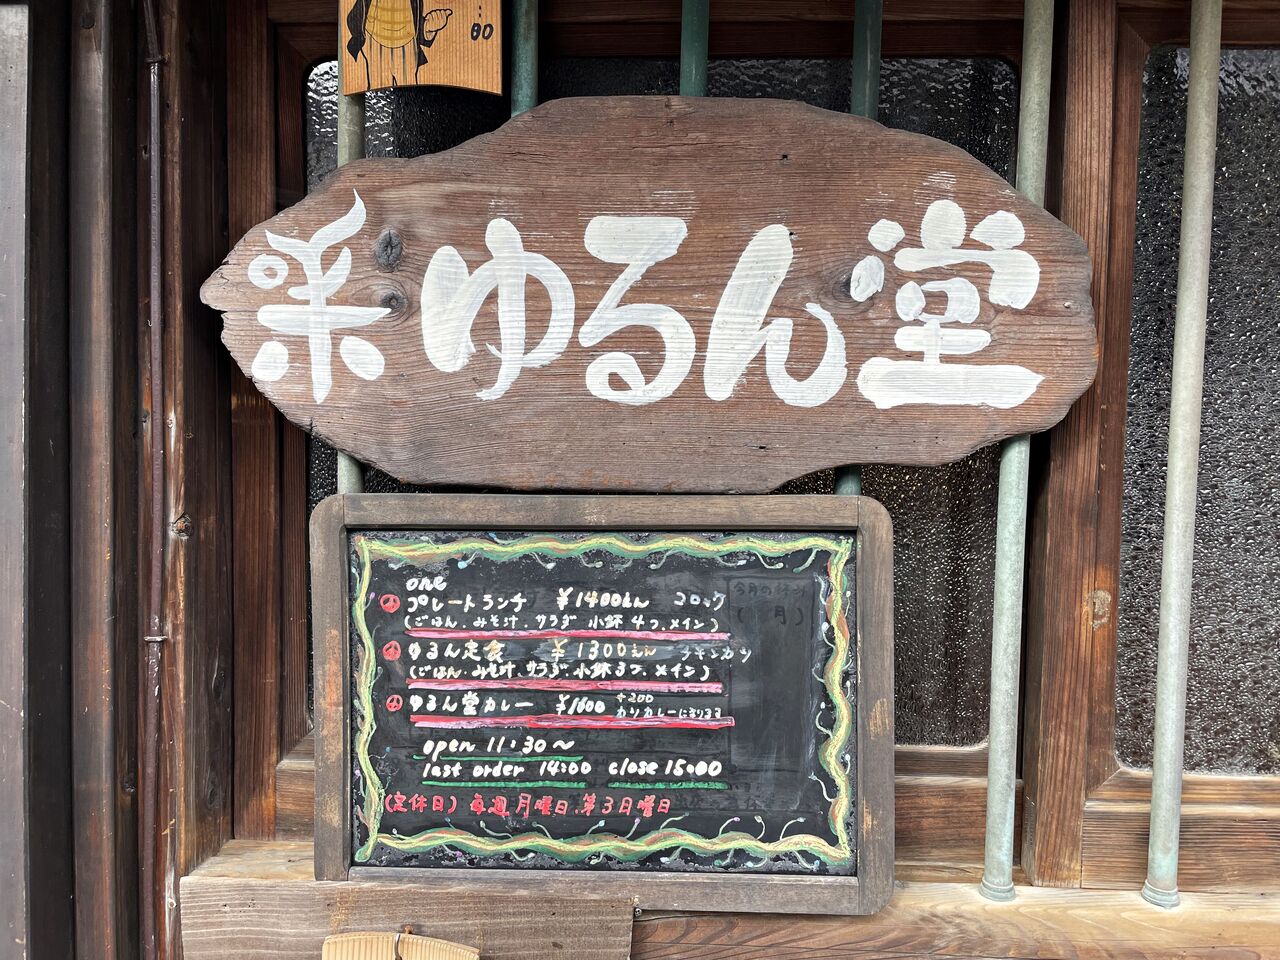 :80
采ゆるん堂
one
プレートランチ ¥1400えん コロッケ
(ごはん、みそ汁、サラダ 小鉢4つ、メイン)
ゆるん定食 ¥1300えん チキンカツ
(ごはん、みそ汁、サラダ 小鉢3つ、メイン)
ゆるん堂カレー ¥1600 +200
カツカレーになります
open 11:30〜
last order 14:00 close 15:00
(定休日) 毎週月曜日、第3日曜日
今月の休み
( 月)